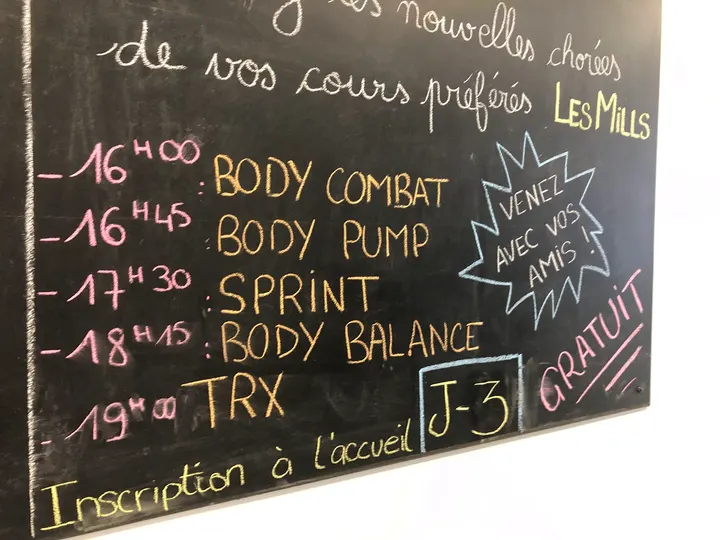 les nouvelles chorées
de vos cours préférés LES MiLLS
- 16H00 : BODY COMBAT
- 16H45 : BODY PUMP
- 17H30 : SPRINT
- 18H15 : BODY BALANCE
- 19H00 TRX
VENEZ
AVEC VOS
AMIS !
GRATUIT
Inscription à l'accueil J-3